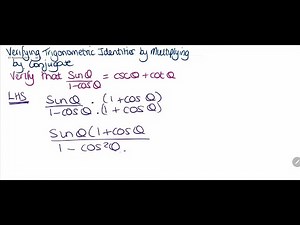 Verifying Trigonometric Identities by Multiplying
by Conjugate
Verify that sinθ/1-cosθ = cscθ + cotθ
LHS sinθ/1-cosθ . (1+cosθ)/(1+cosθ)
sinθ(1+cosθ/1-cos²θ.